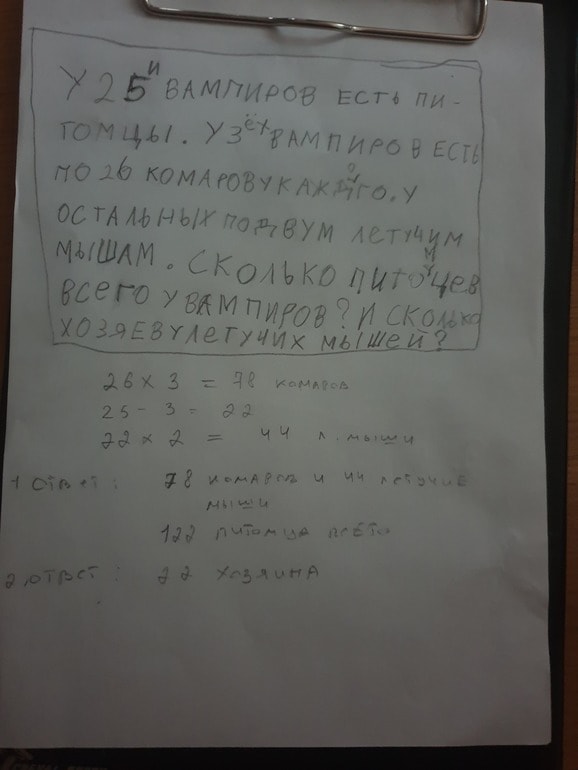 У 25и ВАМПИРОВ ЕСТЬ ПИ-
ТОМЦЫ. У 3ёх ВАМПИРОВ ЕСТЬ
ПО 26 КОМАРОВ У КАЖДОГО. У
ОСТАЛЬНЫХ ПО ДВУМ ЛЕТУЧИМ
МЫШАМ. СКОЛЬКО ПИТОМЦЕВ
ВСЕГО У ВАМПИРОВ? И СКОЛЬКО
ХОЗЯЕВ У ЛЕТУЧИХ МЫШЕЙ?
26 × 3 = 78 комаров
25 - 3 = 22
22 × 2 = 44 л. мыши
1 ответ: 78 комаров и 44 летучие
мыши
122 питомца всего
2. ответ: 22 хозяина